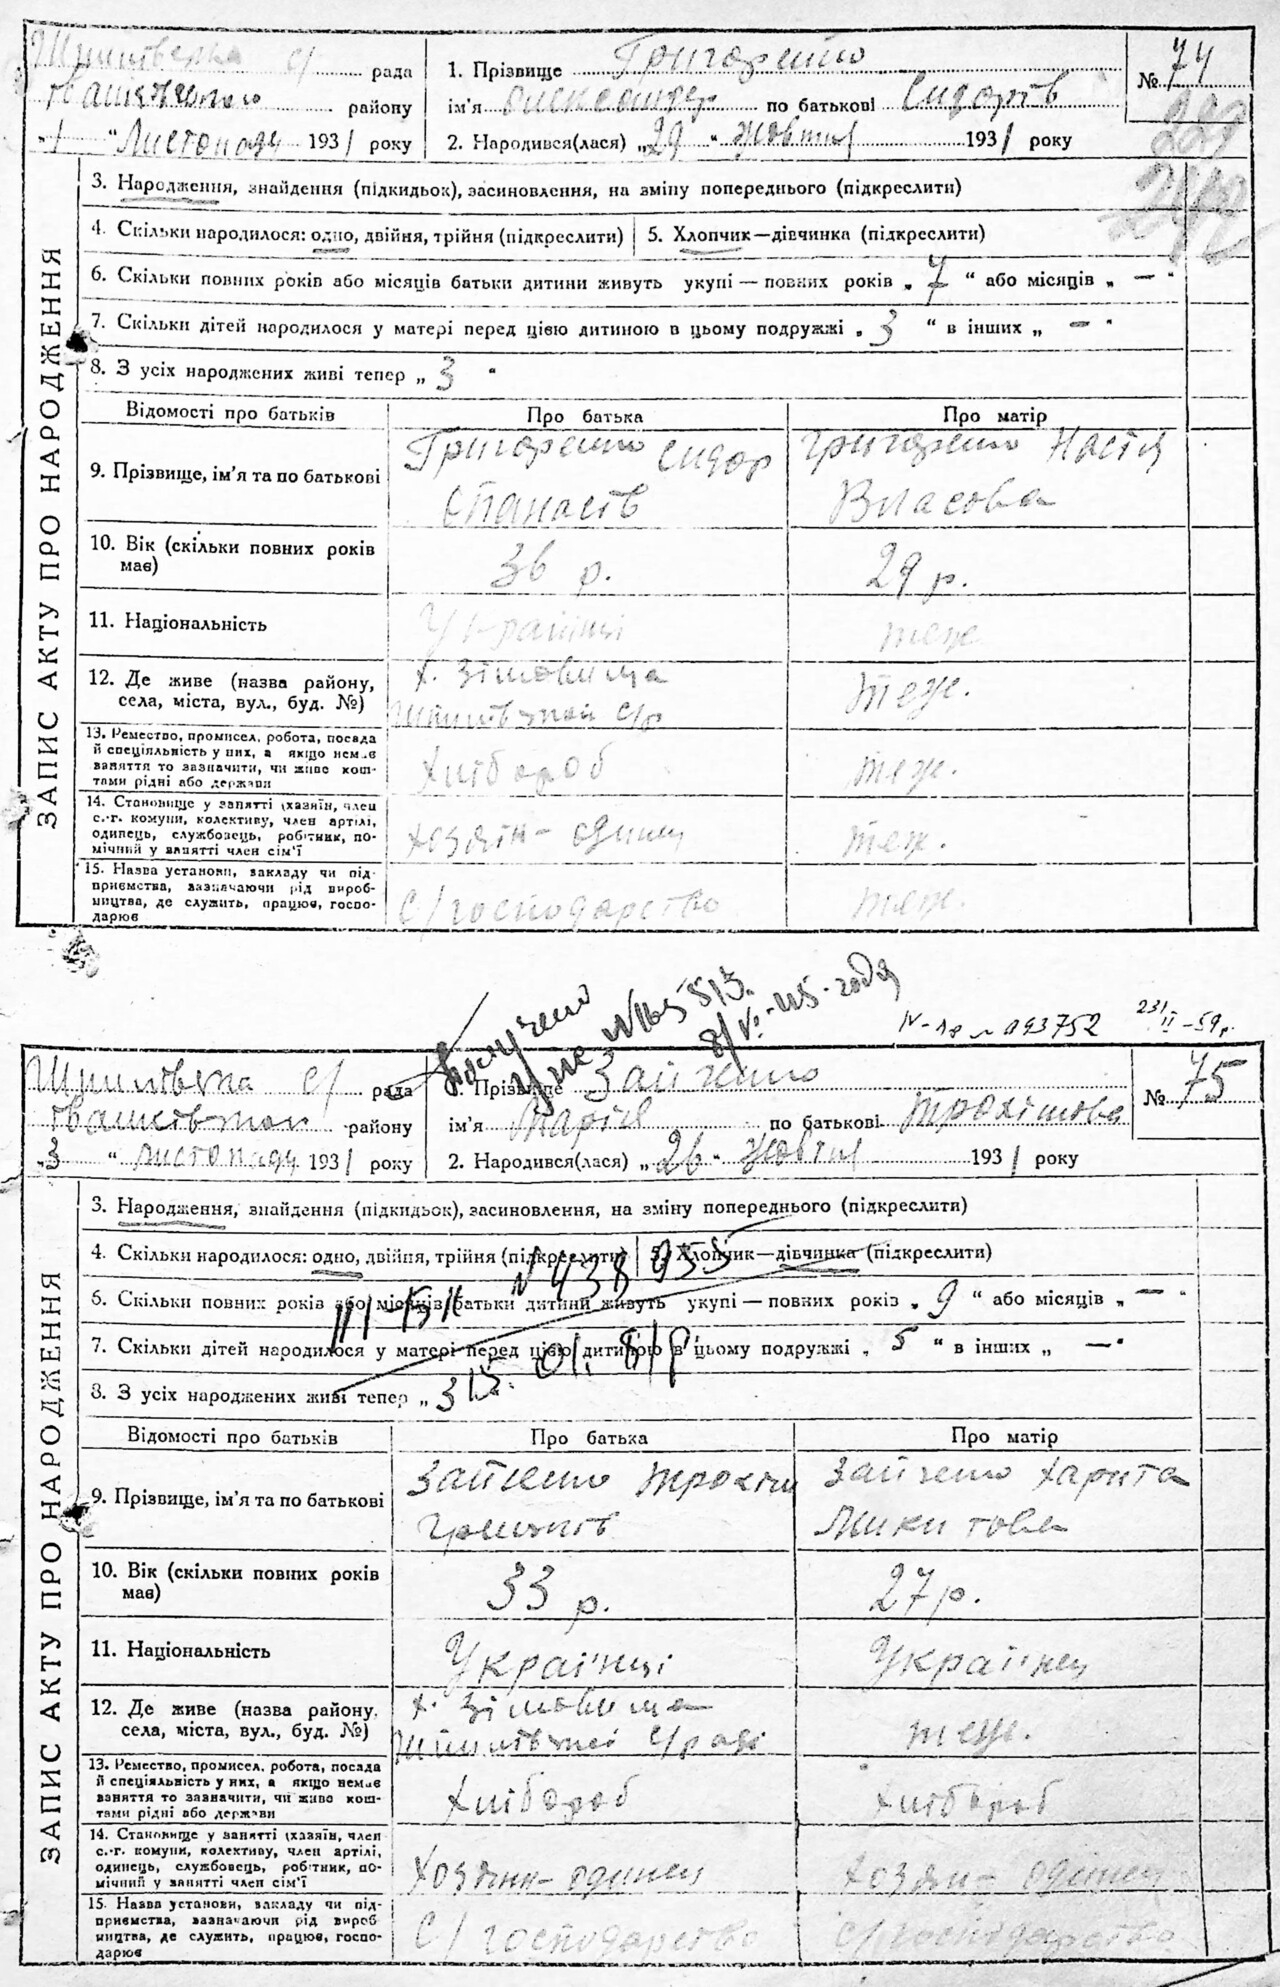 Шпилівська с/ рада
району
„1“ Листопада 1931 року
1. Прізвище Григоренко
ім'я Олександер по батькові Сидорів
2. Народився(лася) „29“ жовтня 1931 року
№ 74
229
ЗАПИС АКТУ ПРО НАРОДЖЕННЯ
3. Народження, знайдення (підкидьок), засиновлення, на зміну попереднього (підкреслити)
4. Скільки народилося: одно, двійня, трійня (підкреслити) 5. Хлопчик—дівчинка (підкреслити)
6. Скільки повних років або місяців батьки дитини живуть укупі — повних років „7“ або місяців „—“
7. Скільки дітей народилося у матері перед цією дитиною в цьому подружжі „3“ в інших „—“
8. З усіх народжених живі тепер „3“
Відомості про батьків Про батька Про матір
9. Прізвище, ім'я та по батькові
Григоренко Сидор
Опанасів
Григоренко Настя
Власова
10. Вік (скільки повних років
має)
36 р. 29 р.
11. Національність Українці теж
12. Де живе (назва району,
села, міста, вул., буд. №)
х. Зімовища
Шпилівської с/р
теж.
13. Ремество, промисел, робота, посада
й спеціяльність у них, а якщо немає
заняття то зазначити, чи живе кош-
тами рідні або держави
Хлібороб теж.
14. Становище у занятті (хазяїн, член
с.-г. комуни, колективу, член артілі,
одинець, службовець, робітник, по-
мічний у занятті член сім'ї
хозяїн-одинец теж.
15. Назва установи, закладу чи під-
приємства, зазначаючи рід вироб-
ництва, де служить, працює, госпо-
дарює
С/господарство теж.
Получено
8/VI-45-года
IV-ля № 093752 23/II-59р.
Шпилівська с/ рада
району
„3“ листопада 1931 року
1. Прізвище Зайченко
ім'я Марія по батькові Трохімова
2. Народився(лася) „26“ жовтня 1931 року
№ 75
ЗАПИС АКТУ ПРО НАРОДЖЕННЯ
3. Народження, знайдення (підкидьок), засиновлення, на зміну попереднього (підкреслити)
4. Скільки народилося: одно, двійня, трійня (підкреслити) 5. Хлопчик—дівчинка (підкреслити)
№ 438935
6. Скільки повних років або місяців батьки дитини живуть укупі — повних років „9“ або місяців „—“
7. Скільки дітей народилося у матері перед цією дитиною в цьому подружжі „5“ в інших „—“
8. З усіх народжених живі тепер „3
Відомості про батьків Про батька Про матір
9. Прізвище, ім'я та по батькові
Зайченко Трохім
Зайченко Харита
Микитова
10. Вік (скільки повних років
має)
33 р. 27 р.
11. Національність Українці Українец
12. Де живе (назва району,
села, міста, вул., буд. №)
х. Зімовища
Шпилівської с/раді
теж.
13. Ремество, промисел, робота, посада
й спеціяльність у них, а якщо немає
заняття то зазначити, чи живе кош-
тами рідні або держави
Хлібороб Хлібороб
14. Становище у занятті (хазяїн, член
с.-г. комуни, колективу, член артілі,
одинець, службовець, робітник, по-
мічний у занятті член сім'ї
Хозяин-одинец Хозяин-одинец
15. Назва установи, закладу чи під-
приємства, зазначаючи рід вироб-
ництва, де служить, працює, госпо-
дарює
С/господарство С/господарство